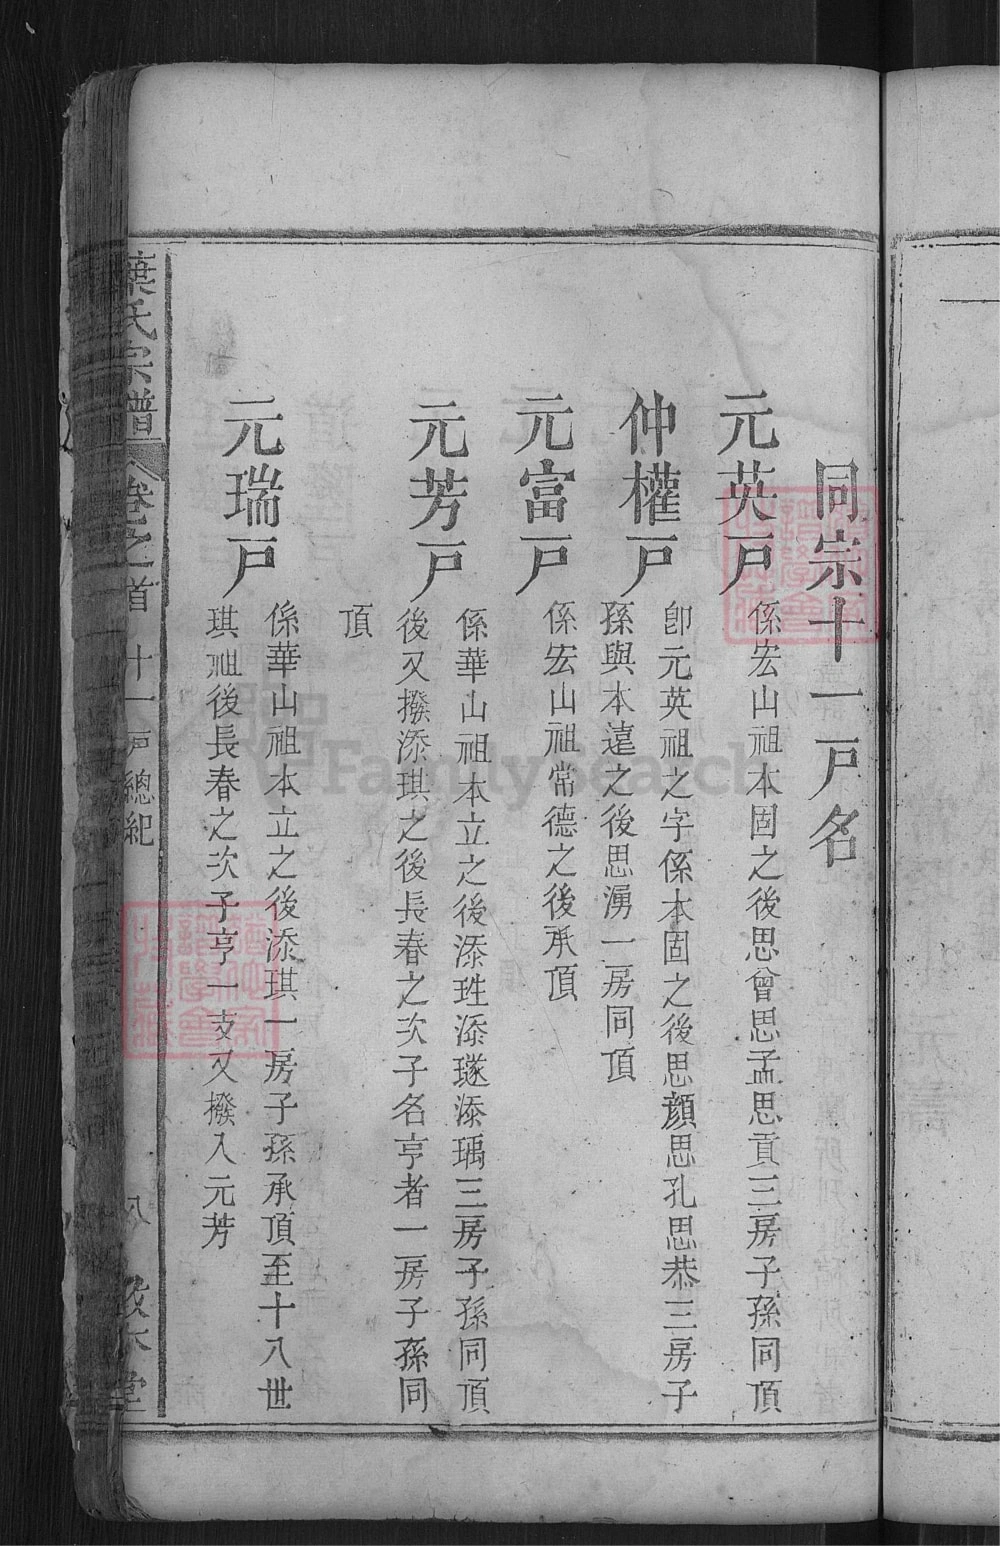 同宗十一戸名
元英戸
係宏山祖本固之後思曾思孟思貢三房子孫同頂
仲權戸
卽元英祖之字係本固之後思顔思孔思恭三房子
孫與本遠之後思湧一房同頂
元富戸
係宏山祖常德之後承頂
元芳戸
係華山祖本立之後添珄添璲添瑀三房子孫同頂
後又撥添琪之後長春之次子名亨者一房子孫同
頂
元瑞戸
係華山祖本立之後添琪一房子孫承頂至十八世
琪祖後長春之次子亨一支又撥入元芳
葉氏宗譜
卷之首
十一戸總紀
八
堂
FamilySearch